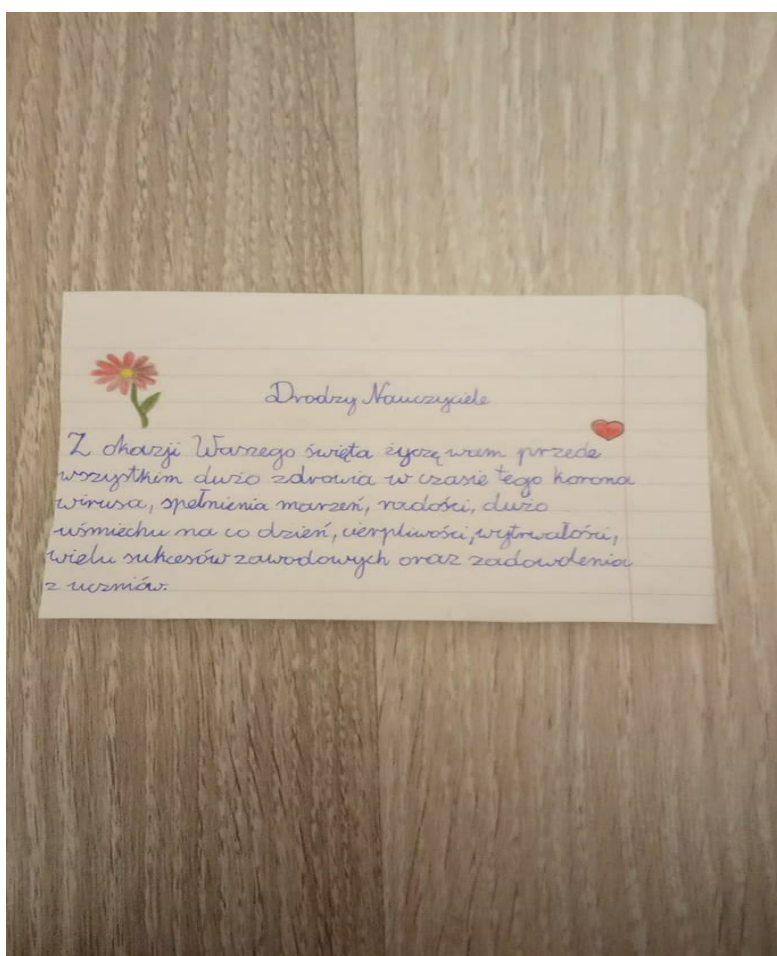 Drodzy Nauczyciele
Z okazji Waszego święta życzę wam przede
wszystkim dużo zdrowia w czasie tego korona
wirusa, spełnienia marzeń, radości, dużo
uśmiechu na co dzień, cierpliwości, wytrwałości,
wielu sukcesów zawodowych oraz zadowolenia
z uczniów.